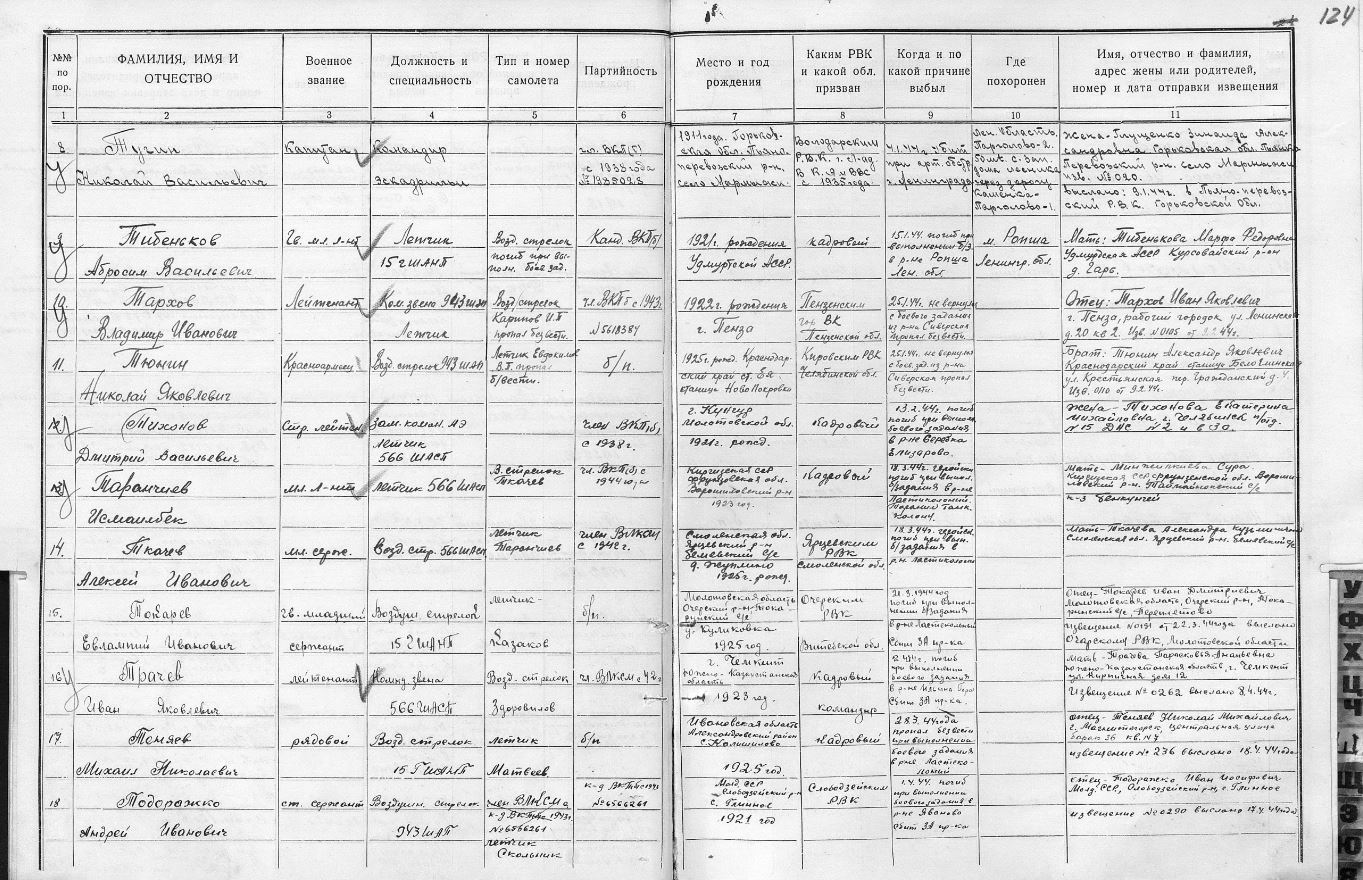 124
№№ по пор.
ФАМИЛИЯ, ИМЯ И ОТЧЕСТВО
Военное звание
Должность и специальность
Тип и номер самолета
Партийность
Место и год рождения
Каким РВК и какой обл. призван
Когда и по какой причине выбыл
Где похоронен
Имя, отчество и фамилия, адрес жены или родителей, номер и дата отправки извещения
1 2 3 4 5 6 7 8 9 10 11
8
Тугин
Николай Васильевич
Капитан
Командир
эскадрильи
чл. ВКП(б)
с 1938 года
1911 года. Горьков-
ская обл. Пьяно-
перевожский р-н,
Володарским
Р.В.К.
с 1935 года.
4.1.44г. убит
при арт. обстр.
г. Ленинграда
Лен. область
Парголово-2.
через дорогу
Каменка-
Парголово-1.
Жена-Глущенко Зинаида Алек-
сандровна Горьковская обл. Пьяно-
Перевожский р-н. село
выслано: 9.1.44г. в Пьяно-перевоз-
ский Р.В.К. Горьковской Обл.
9
Тибеньков
Абросим Васильевич
Гв. мл. л-нт
Летчик
15 гШАП
Возд. стрелок
погиб при вы-
полн. боев. зад.
Канд. ВКП(б)
1921г. рождения
Удмуртской АССР.
кадровый
15.1.44г. погиб при
выполнении б/з.
в р-не Ропша
Лен. обл.
м. Ропша
Ленингр. обл.
Мать: Тибенькова Марфа Федоровна
Удмурдская АССР Курсовайский р-он
д. Гарь.
Тархов
Владимир Иванович
Лейтенант
Ком. звено 943 шап
Летчик
Возд/стрелок
Карипов И.П.
пропал безвести.
чл. ВКПб с 1943г.
№5618384
1922г. рождения
г. Пенза
Пензенским
гор ВК
Пензенской обл.
25.1.44г. не вернулся
с боевого задания
из р-на Сиверская
Пропал безвести.
Отец: Тархов Иван Яковлевич
г. Пенза, рабочий городок, ул. Ленинская
д. 20 кв 2. Изв. №0105 от 9.2.44г.
11.
Тюнин
Николай Яковлевич
Красноармеец
Возд. стрелок 943 ШАП
Летчик Евдокимов
В.Г. пропал
б/вести.
б/п.
1925г. рожд. Краснодар-
ский край ст. Ея
станица НовоПокровка
Кировским РВК
Челябинской обл.
25.1.44г. не вернулся
с боев. зад. из р-на
Сиверская пропал
безвести.
Брат: Тюнин Александр Яковлевич
Краснодарский край станица Белоглинская
ул. Крестьянская пер. Гражданский д. 4
Изв. 0110 от 9.2.44г.
12
Тихонов
Дмитрий Васильевич
Стр. лейтен.
Зам. коман. АЭ
летчик
566 ШАП
член ВКП(б)
с 1938г.
г. Кунгур
Молотовской обл.
1921г. рожд.
Кадровый
13.2.44г. погиб
погиб при выполн.
боевого задания
в р-не Веревка
Елизарово.
Жена - Тихонова Екатерина
Михайловна г. Челябинск
№15 ДНС №2 и в 30.
13
Таранчиев
Исмаилбек
мл. л-нт
летчик 566 ШАП
В. стрелок
Ткачев
чл. ВКП(б) с
1944 года
Киргизская ССР
Фрунзенская обл.
Ворошиловский р-н
1923 год.
Кадровый
18.3.44г. геройски
погиб при выпол.
б/задания в р-не
Ластиколоний.
Таранил танк.
колону.
Мать - Минжилкиева Сура.
Киргизская ССР Фрунзенской обл. Вороши-
ловский р-н.
14.
Ткачев
Алексей Иванович
мл. серж.
Возд. стр. 566 ШАП
летчик
Таранчиев
член ВЛКСМ
с 1942г.
Смоленская обл.
Ярцевский р-н
1925г. рожд.
Ярцевским
РВК
Смоленской обл.
18.3.44г. геройск.
погиб при вып.
б/задания в
р-не Ластиколоний
Мать-Ткачева Александра Кузьминична
Смоленская обл. Ярцевский р-н.
15.
Токарев
Евлампий Иванович
Гв. младший
сержант
Воздуш. стрелок
15 ГШАП
летчик-
Казаков
б/п.
Молотовская область
Очерский р-н
Куликовка
1925 год.
Очерским
РВК
Витебской обл.
21.3.1944 год
погиб при выпол-
нении б/задания
в р-не Ластиколоний
Сбит ЗА пр-ка
Отец-Токарев Иван Дмитриевич
Молотовская область, Очерский р-н,
извещение №0191 от 22.3.44года выслано
Очерскому РВК, Молотовской области.
16
Трачев
Иван Яковлевич
лейтенант
Команд. звена
566 ШАП
Возд. стрелок
Здоровилов
чл. ВЛКСМ с 42г.
г. Чемкент
Южно-Казахстанская
область
1923 год.
Кадровый
командир
погиб
при выполнении
боевого задания
Сбит ЗА пр-ка.
Мать - Трачова Парасковья Ананьевна
Южно-Казахстанская область, г. Чемкент
ул. Кирпичная дом 12
Извещение №0262 выслано 8.4.44г.
17.
Теняев
Михаил Николаевич
рядовой
Возд. стрелок
15 ГШАП
летчик
Матвеев
б/п
Ивановская область
Александровский район
с. Калинино
1925 год
Кадровый
28.3.44 года
пропал безвести
при выполнении
боевого задания
в р-не Ластико-
лоний
отец-Теняев Николай Михайлович
г. Магнитогорск, Центральная улица
барак 36 кв. №7
извещение №236 выслано 18.4.44года
18
Тодоражко
Андрей Иванович
ст. сержант
Воздушн. стрелок
943 ШАП
член ВЛКСМа
к-д ВКП(б) 1943г.
№6566261
летчик
Скольник
к-д ВКП(б) с 1943г.
№6566261
Молд. ССР
Слободзейский р-н
с. Глинное
1921 год
Слободзейским
РВК
1.4.44. погиб
при выполнении
боев. задания в
р-не Яваново
Сбит ЗА пр-ка
отец-Тодоражко Иван Иосифович.
Молд. ССР, Слободзейский р-н, с. Глинное
извещение №0290 выслано 17.4.44года
У
Ф
Х
Ц
Ч
Щ
Э
Ю